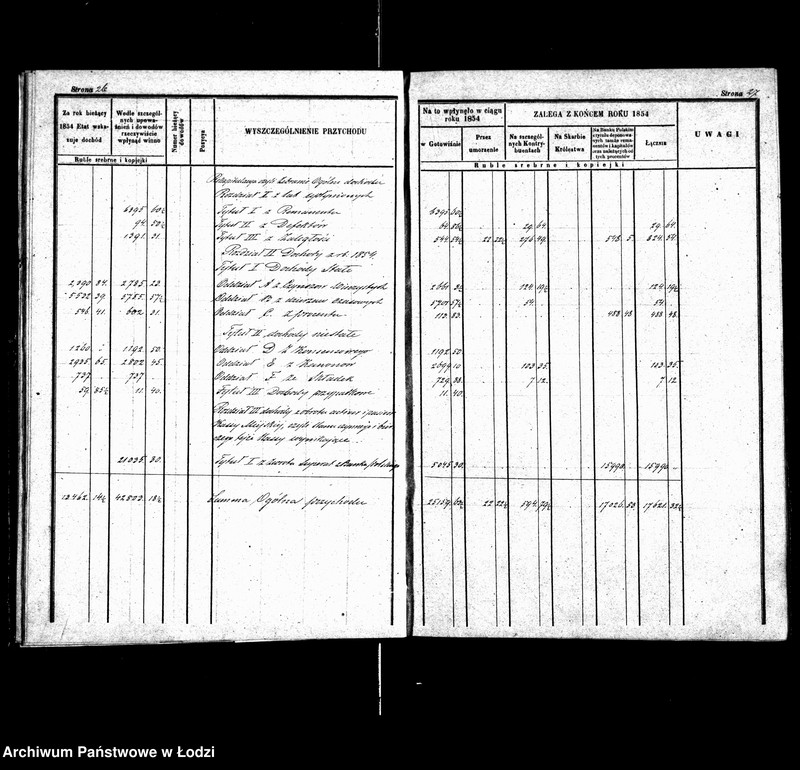 Strona 26
Za rok bieżący 1854 Etat wskazuje dochód
Wedle szczególnych upoważnień i dowodów rzeczywiście wpłynąć winno
Numer bieżący dowodów
Pozycya
WYSZCZEGÓLNIENIE PRZYCHODU
Ruble srebrne i kopiejki
Rekapitulacya czyli Zebranie Ogólne dochodu
Rozdział I z lat upłynionych
6395 60½ Tytuł I z Remanentu
94 50½ Tytuł II z Defektów
1391 31 Tytuł III z Zaległości
Rozdział II Dochody z r. 1854
Tytuł I Dochody Stałe
2,090 84 2785 20 Oddział A z Czynszów Wieczystych
5532 39 5755 57½ Oddział B z dzierżaw Czasowych
546 41 602 31 Oddział C z procentu
Tytuł II dochody niestałe
1260 1192 50 Oddział D z Konsensowego
2935 65 2802 45 Oddział E z Kanonów
737 737 Oddział F ze Składek
59 85½ 11 40 Tytuł III Dochody przypadkowe
Rozdział III dochody z obrotu activów i passivów
Kassy Miejskiej, czyli
czego tejże Kassy wynikające
21035 30 Tytuł I z zwrotu z Banku Polskiego
13462 14½ 42803 18½ Summa Ogólna przychodu
Strona 27
Na to wpłynęło w ciągu roku 1854
w Gotowiźnie
Przez umorzenie
ZALEGA Z KOŃCEM ROKU 1854
Na szczególnych Kontrybuentach
Na Skarbie Królestwa
Na Banku Polskim z tytułu deponowanych tamże remanentów i kapitałów oraz należących od tych procentów
ŁĄCZNIE
UWAGI
Ruble srebrne i kopiejki
6395 60½
64 86½ 29 64 29 64
544 54½ 22 22½ 276 49 548 5 824 54
2661 3½ 124 19½ 124 19½
5701 57½ 54 54
113 83 488 48 488 48
1192 50
2699 10 103 35 103 35
729 88 7 12 7 12
11 40
5045 30 15990 15990
25159 63½ 22 22½ 594 79½ 17026 53 17621 32½
Archiwum Państwowe w Łodzi